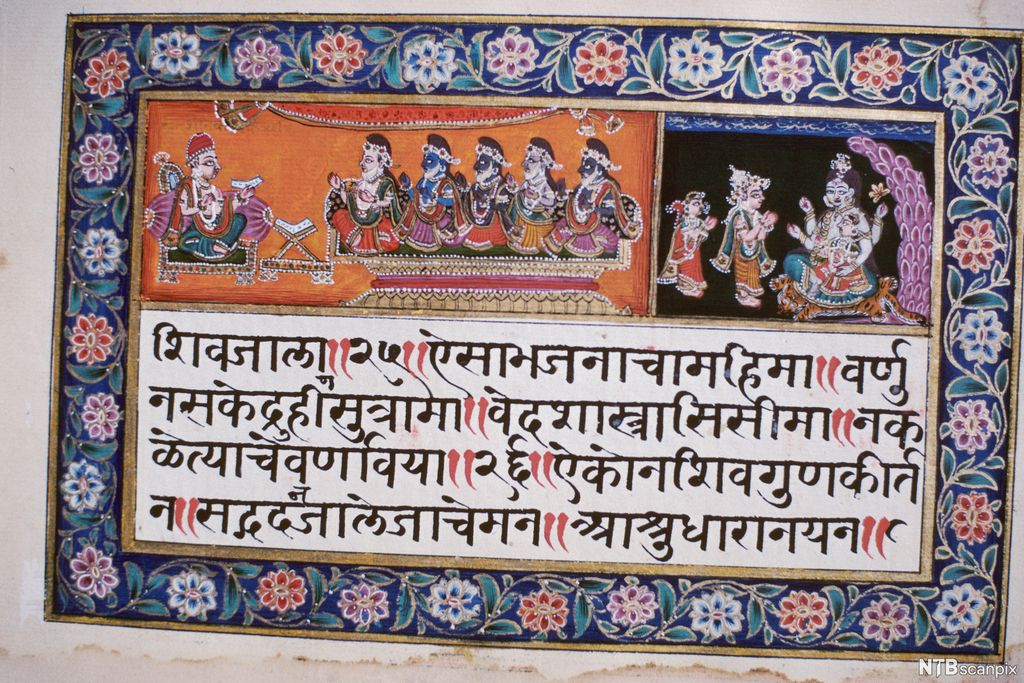 शिवजाला॥२५॥ऐसाभजनाचामहिमा॥वर्णु
नसकेद्रुहीणसुत्रामा॥वेदशास्त्रासिसीमा॥नक
ळेत्याचेवर्णाविया॥२६॥ऐकोनशिवगुणकीर्त
न॥सद्गदनजालेजाचेमन॥आश्रुधारानयन॥
NTB scanpix